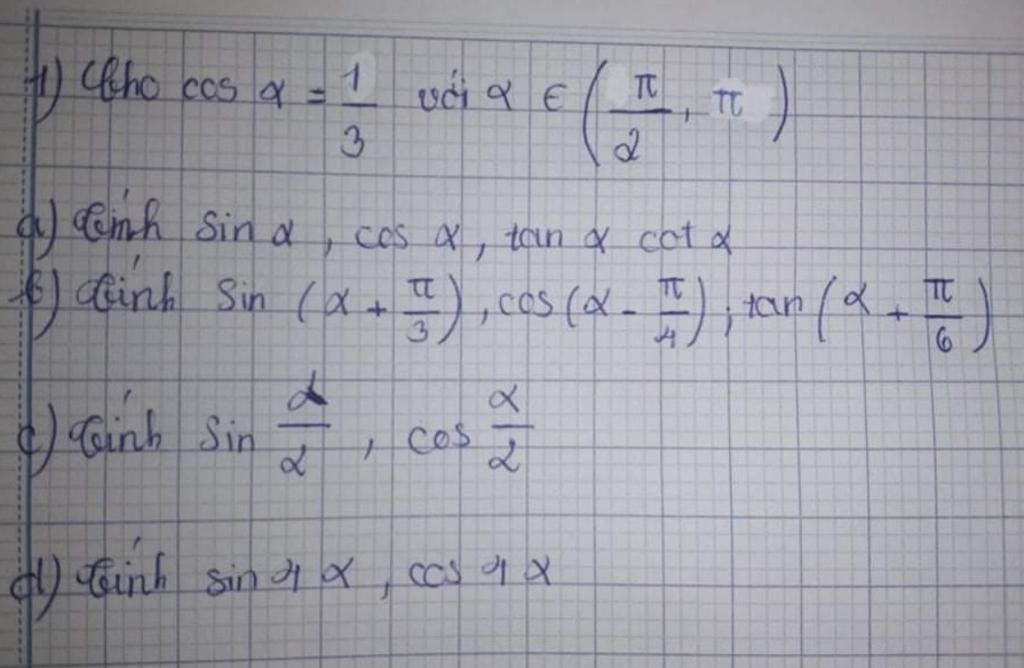 1) Cho cos α = 1/3 với α ∈ (π/2, π)
a) Tính sin α, cos α, tan α cot α
b) Tính sin (α + π/3), cos (α - π/4); tan (α + π/6)
c) Tính sin α/2, cos α/2
d) Tính sin 4α, cos 4α